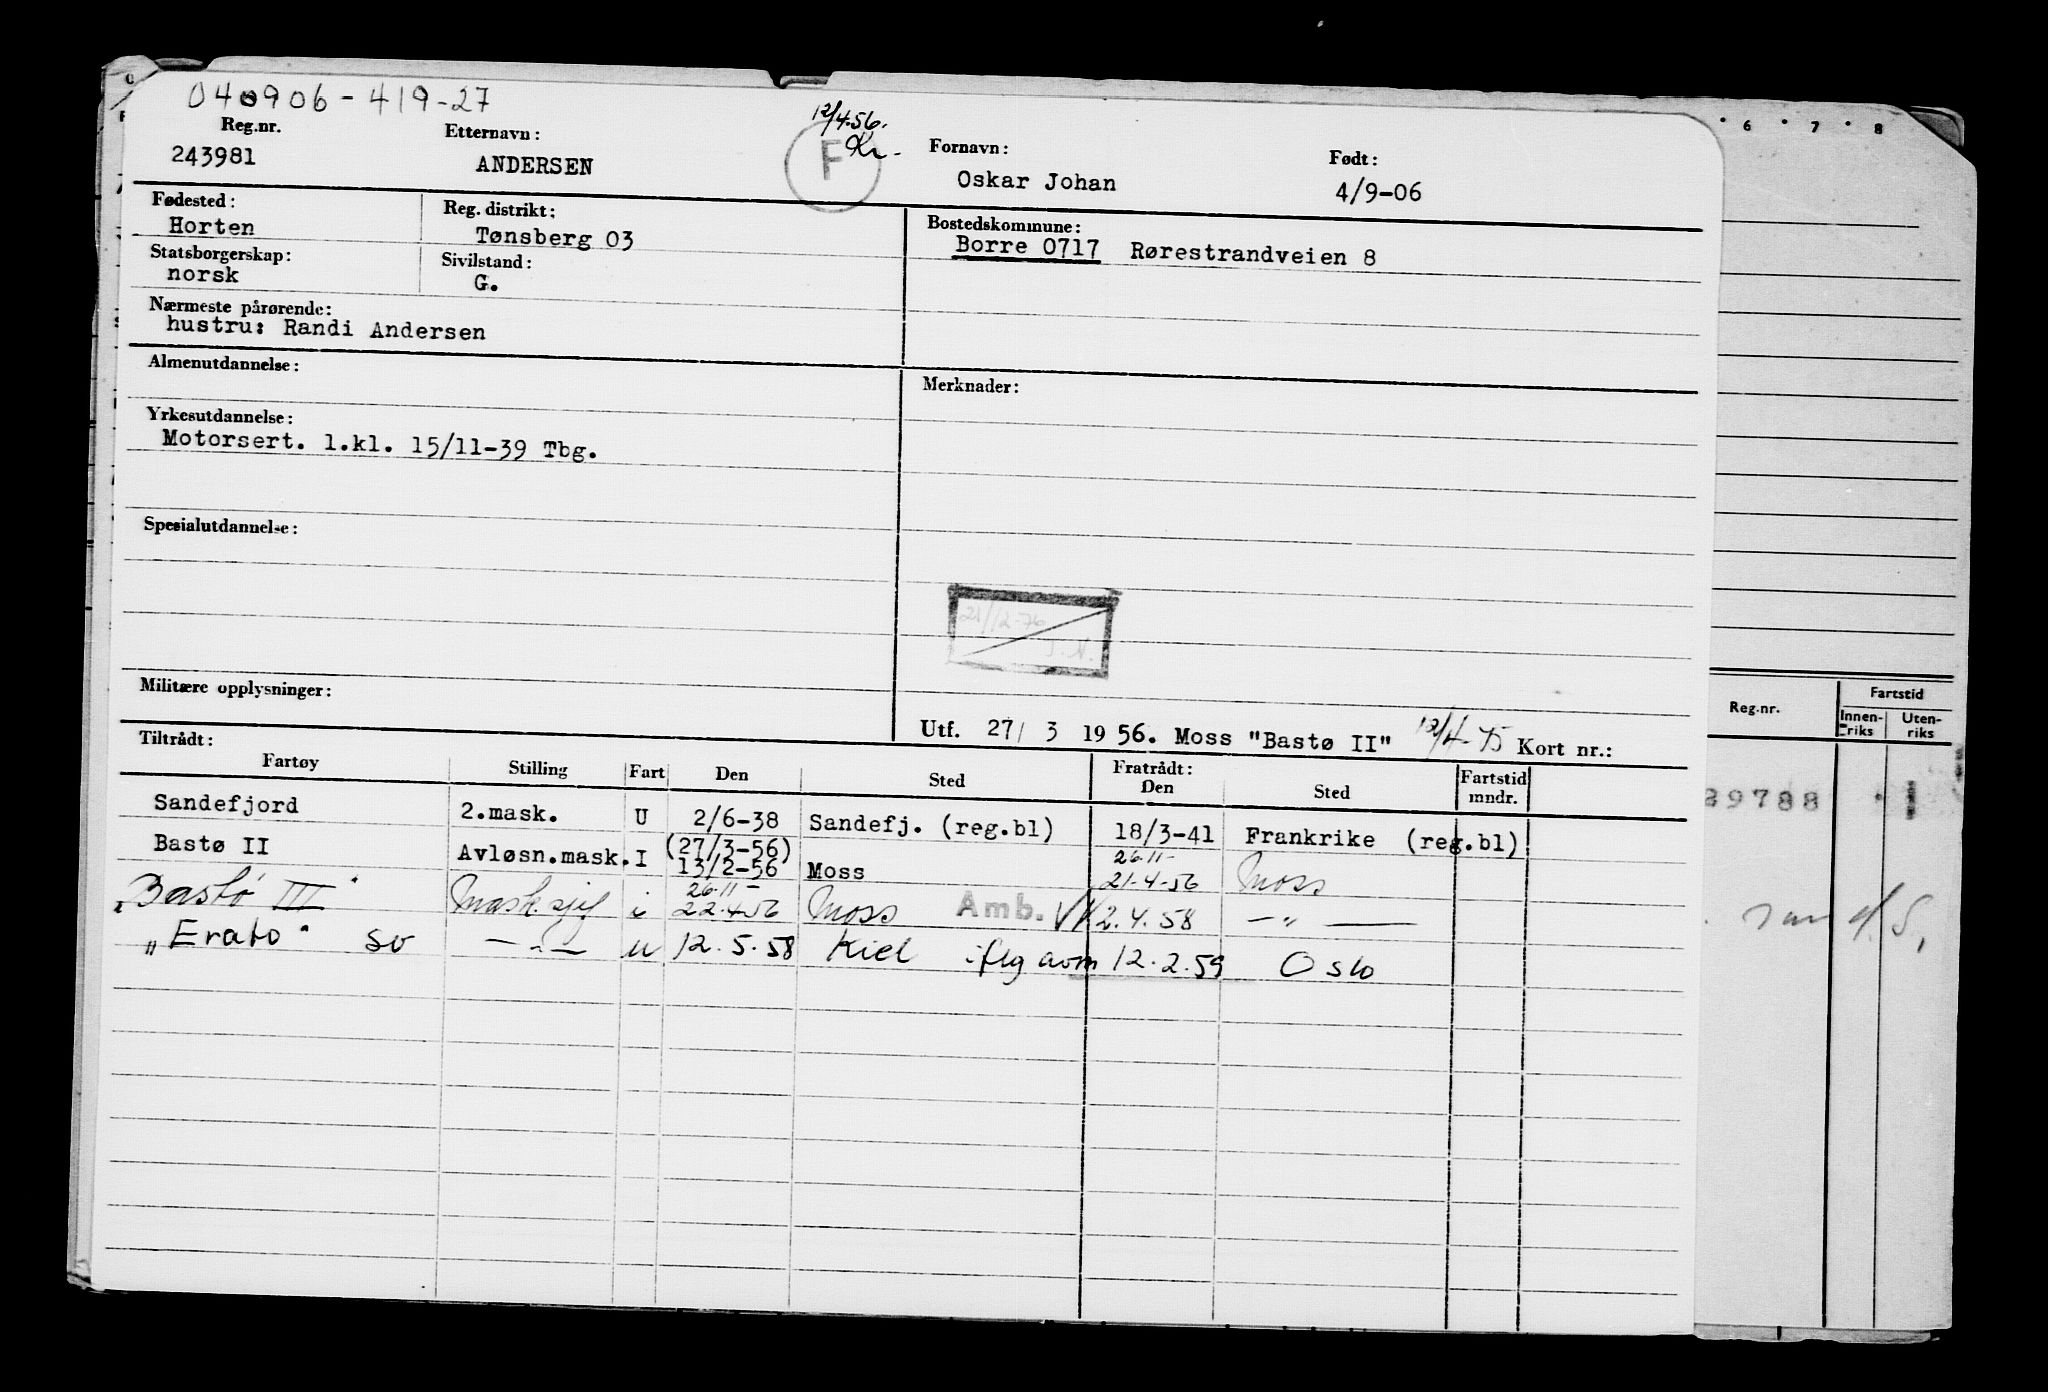 040906-419-27
12/4.56.
Kr.
F
6 7 8
Reg.nr. Etternavn: Fornavn: Født:
243981 ANDERSEN Oskar Johan 4/9-06
Fødested: Reg. distrikt: Bostedskommune:
Horten Tønsberg 03 Borre 0717 Rørestrandveien 8
Statsborgerskap: Sivilstand:
norsk G.
Nærmeste pårørende:
hustru: Randi Andersen
Almenutdannelse: Merknader:
Yrkesutdannelse:
Motorsert. 1.kl. 15/11-39 Tbg.
Spesialutdannelse:
21/12-76
J.N.
Militære opplysninger:
Utf. 27/ 3 1956. Moss "Bastø II" 12/4-75 Kort nr.:
Reg.nr. Fartstid
Innenriks Utenriks
Tiltrådt: Fratrådt:
Fartøy Stilling Fart Den Sted Den Sted Fartstid mndr.
Sandefjord 2.mask. U 2/6-38 Sandefj. (reg.bl) 18/3-41 Frankrike (reg.bl)
Bastø II Avløsn.mask. I (27/3-56) 13/2-56 Moss 26.11- 21.4-56 Moss
"Bastø III" Mask.sjef i 26.11- 22.4-56 Moss Amb. 2.4.58 -"-
"Erato" SO -"- u 12.5.58 Kiel iflg avm 12.2.59 Oslo
39788